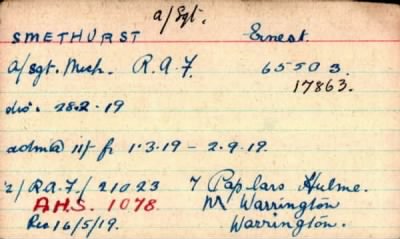 a/Sgt.
SMETHURST Ernest.
a/sgt. Mech. R.A.F. 65503.
17863.
dis. 28.2.19
admd 11/- fr 1.3.19 – 2.9.19.
2/R.A.F./21023 7 Poplars Hulme.
A.H.S. 1078. Nr Warrington
Rec 16/5/19. Warrington.